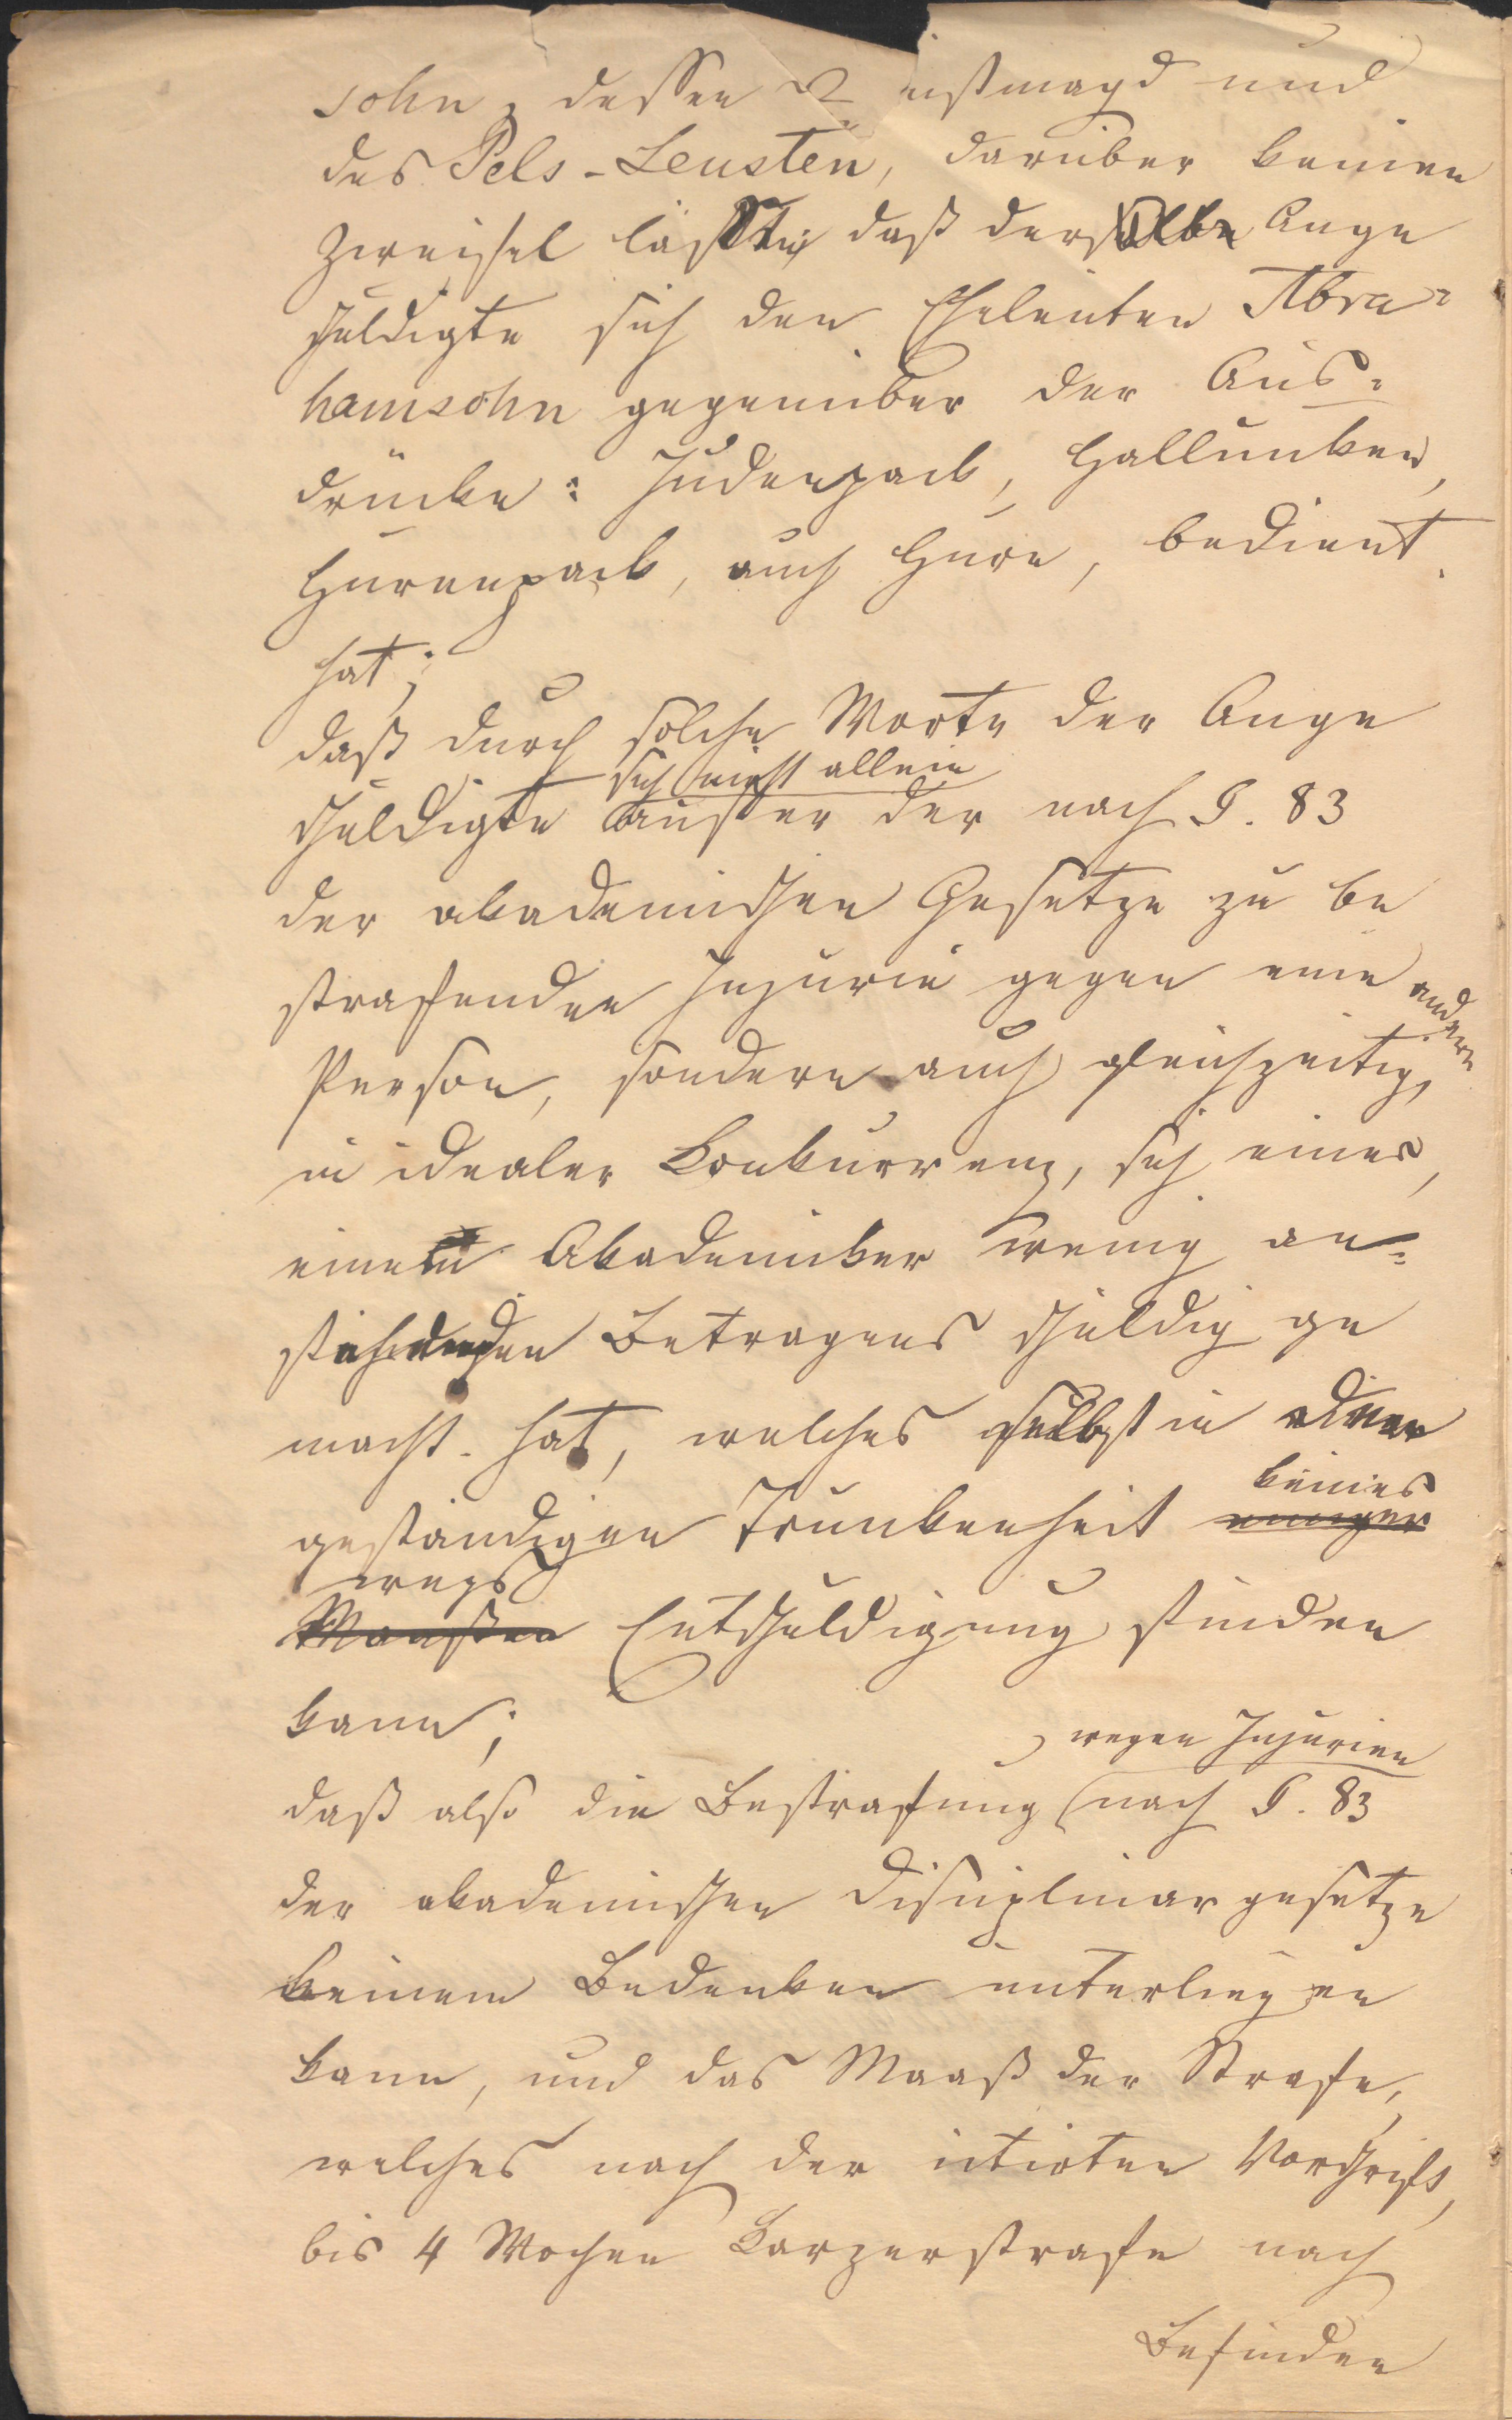 sohn, dessen Dienstmagd und
des Pels-Leusten, darüber keinen
Zweifel läßt, daß der Ange
schuldigte sich den Eheleuten Abra=
hamsohn gegenüber der Aus=
drücke: Judenpack, Hallunken,
Hurenpack, auch Hure, bedient
hat;
daß durch solche Worte der Ange
sich nicht allein
schuldigte außer der nach §. 83
der akademischen Gesetze zu be
strafenden Injurie gegen eine andere
Person, sondern auch gleichzeitig,
in idealer Konkurrenz, sich eines,
einem Akademiker wenig an=
stehenden Betragens schuldig ge
macht hat, welches selbst in einer
keines
geständigen Trunkenheit einiger
wegs
Maaßen Entschuldigung finden
kann;
wegen Injurien
daß also die Bestrafung nach §. 83
der akademischen Disciplinargesetze
keinem Bedenken unterliegen
kann, und das Maaß der Strafe,
welches nach der citirten Vorschrift,
bis 4 Wochen Karzerstrafe nach
Befinden